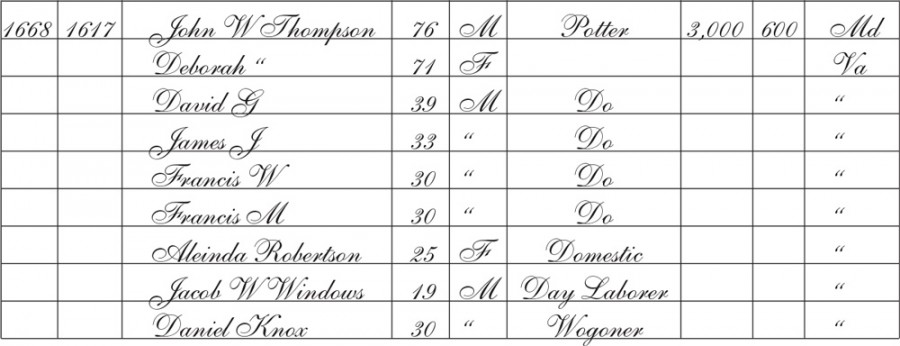 1668 1617 John W Thompson 76 M Potter 3,000 600 Md
Deborah “ 71 F Va
David G 39 M Do “
James J 33 “ Do “
Francis W 30 “ Do “
Francis M 30 “ Do “
Aleinda Robertson 25 F Domestic “
Jacob W Windows 19 M Day Laborer “
Daniel Knox 30 “ Wogoner “